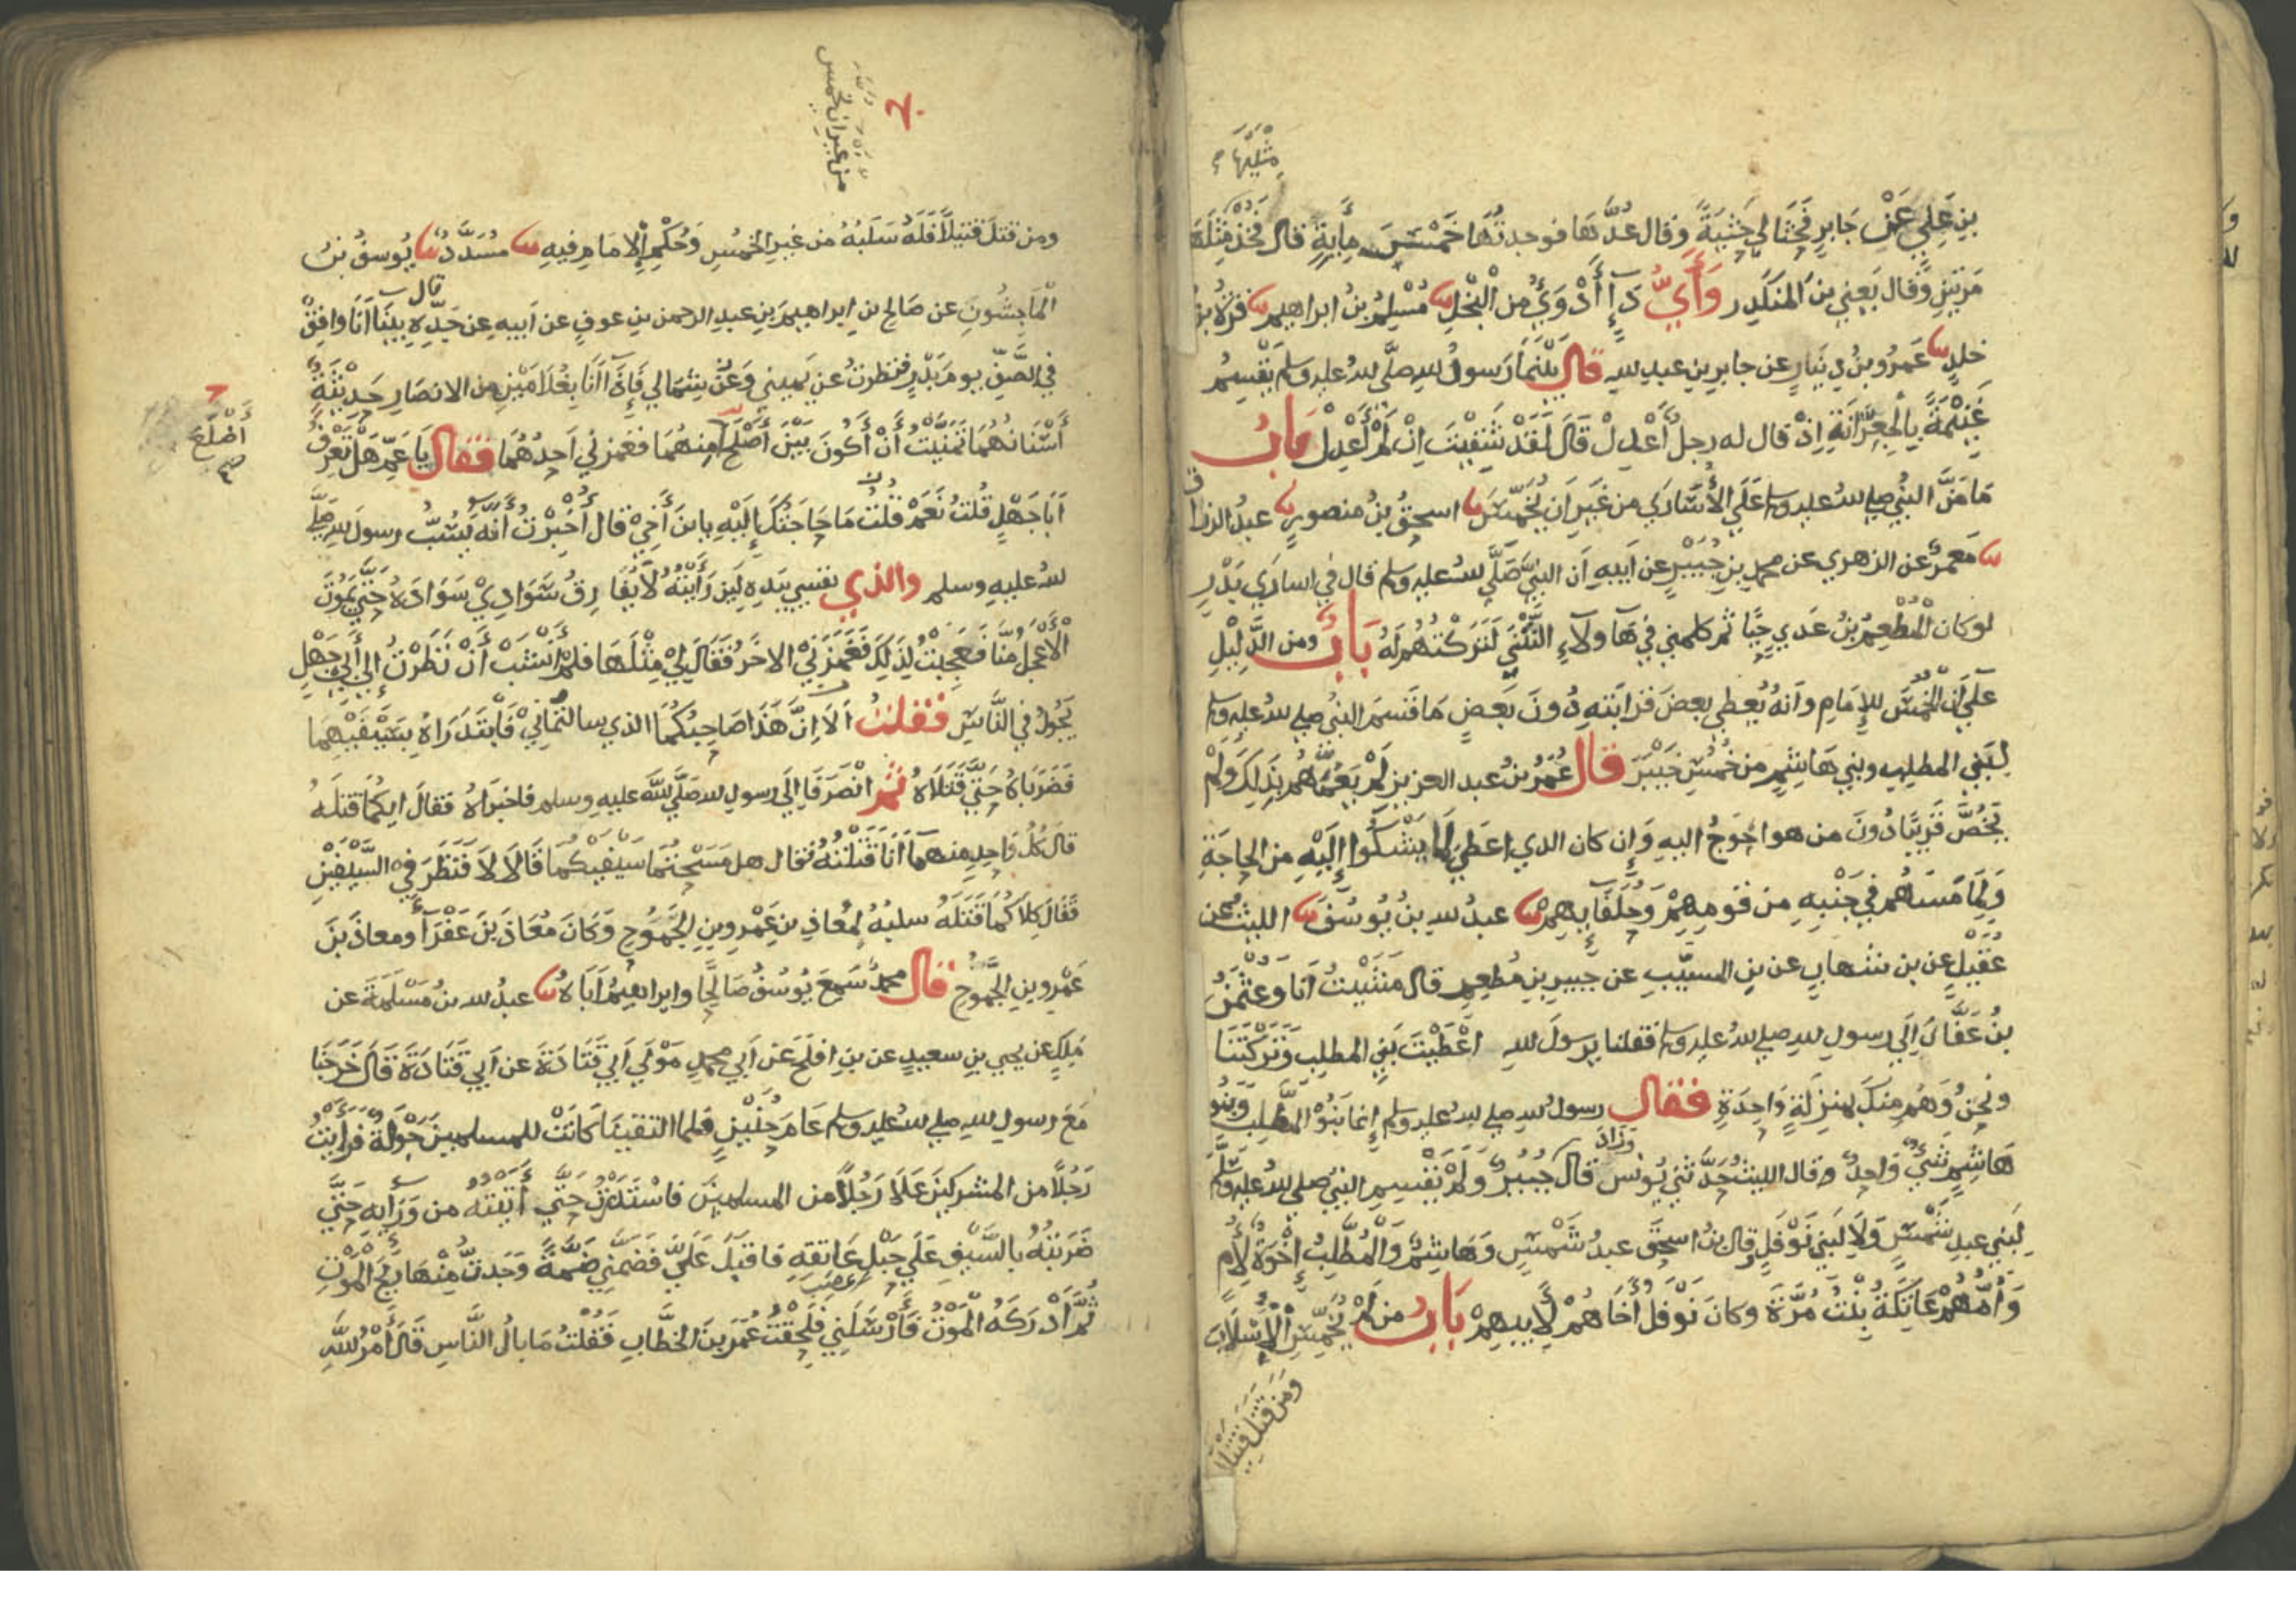 مثليها
بن علي عن جابر فحثا لي حثية وقال عدها فوجدتها خمس ماية قال فخذ مثلها
مرتين وقال يعني بن المنكدر وأي داء أدوى من البخل نا مسلم بن ابراهيم نا قرة بن
خلد نا عمرو بن دينار عن جابر بن عبد لله قال بينما رسول لله صلى لله عليه وسلم يقسم
غنيمة بالجعرانة إذ قال له رجل أعدل قال لقد شقيت إن لم أعدل باب
ما من النبي صلى لله عليه وسلم على الأسارى من غير ان يخمس نا اسحق بن منصور نا عبد الرزاق
نا معمر عن الزهري عن محمد بن جبير عن ابيه ان النبي صلى لله عليه وسلم قال في اسارى بدر
لو كان المطعم بن عدي حيا ثم كلمني في هاولاء النتنى لتركتهم له باب ومن الدليل
على أن الخمس للإمام وانه يعطي بعض قرابته دون بعض ما قسم النبي صلى لله عليه وسلم
لبني المطلب وبني هاشم من خمس خيبر قال عمر بن عبد العزيز لم يعمهم بذلك ولم
يخص قريبا دون من هو احوج اليه وإن كان الذي اعطي لما يشكوا إليه من الحاجة
ولما مستهم في جنبه من قومهم وحلفايهم نا عبد لله بن يوسف نا الليث عن
عقيل عن بن شهاب عن بن المسيب عن جبير بن مطعم قال مشيت أنا وعثمن
بن عفان إلى رسول لله صلى لله عليه وسلم فقلنا يرسول لله اعطيت بني المطلب وتركتنا
ونحن وهم منك بمنزلة واحدة فقال رسول لله صلى لله عليه وسلم إنما بنو المطلب وبنو
هاشم شيء واحد وقال الليث حدثني يونس وزاد قال جبير ولم يقسم النبي صلى لله عليه وسلم
لبني عبد شمس ولا لبني نوفل قال بن اسحق عبد شمس وهاشم والمطلب إخوة لأم
وأمهم عاتكة بنت مرة وكان نوفل أخاهم لأبيهم باب من لم يخمس الأسلاب
ومن قتل قتيلا
من غير ان يخمس
ومن قتل قتيلا فله سلبه من غير الخمس وحكم الامام فيه نا مسدد نا يوسف بن
الماجشون عن صالح بن ابراهيم بن عبد الرحمن بن عوف عن ابيه عن جده قال بينا أنا واقف
في الصف يوم بدر فنظرت عن يميني وعن شمالي فإذا أنا بغلامين من الانصار حديثة
أسنانهما تمنيت أن أكون بين أصلح منهما فغمزني احدهما فقال يا عم هل تعرف
أضلع
ابا جهل قلت نعم قلت ما حاجتك إليه يا ابن أخي قال أخبرت أنه يسب رسول لله صلى
لله عليه وسلم والذي نفسي بيده لين رأيته لا يفارق سوادي سواده حتى يموت
الأعجل منا فعجبت لذلك فغمزني الاخر فقال لي مثلها فلم أنشب أن نظرت إلى أبي جهل
يجول في الناس فقلت ألا إن هذا صاحبكما الذي سالتماني فابتدراه بسيفيهما
فضرباه حتى قتلاه ثم انصرفا إلى رسول لله صلى لله عليه وسلم فاخبراه فقال ايكما قتله
قال كل واحد منهما أنا قتلته فقال هل مسحتما سيفيكما قالا لا فنظر في السيفين
فقال كلاكما قتله سلبه لمعاذ بن عمرو بن الجموح وكان معاذ بن عفرآ ومعاذ بن
عمرو بن الجموح قال محمد سمع يوسف صالحا وابراهيم أباه نا عبد لله بن مسلمة عن
ملك عن يحيى بن سعيد عن بن افلح عن أبي محمد مولى أبي قتادة عن ابي قتادة قال خرجنا
مع رسول لله صلى لله عليه وسلم عام حنين فلما التقينا كانت للمسلمين جولة فرأيت
رجلا من المشركين على رجلا من المسلمين فاستدرت حتى أتيته من ورايه حتى
ضربته بالسيف على حبل عاتقه فاقبل علي فضمني ضمة وجدت منها ريح الموت
ثم أدركه الموت فأرسلني فلحقت عمر بن الخطاب فقلت ما بال الناس قال أمر لله